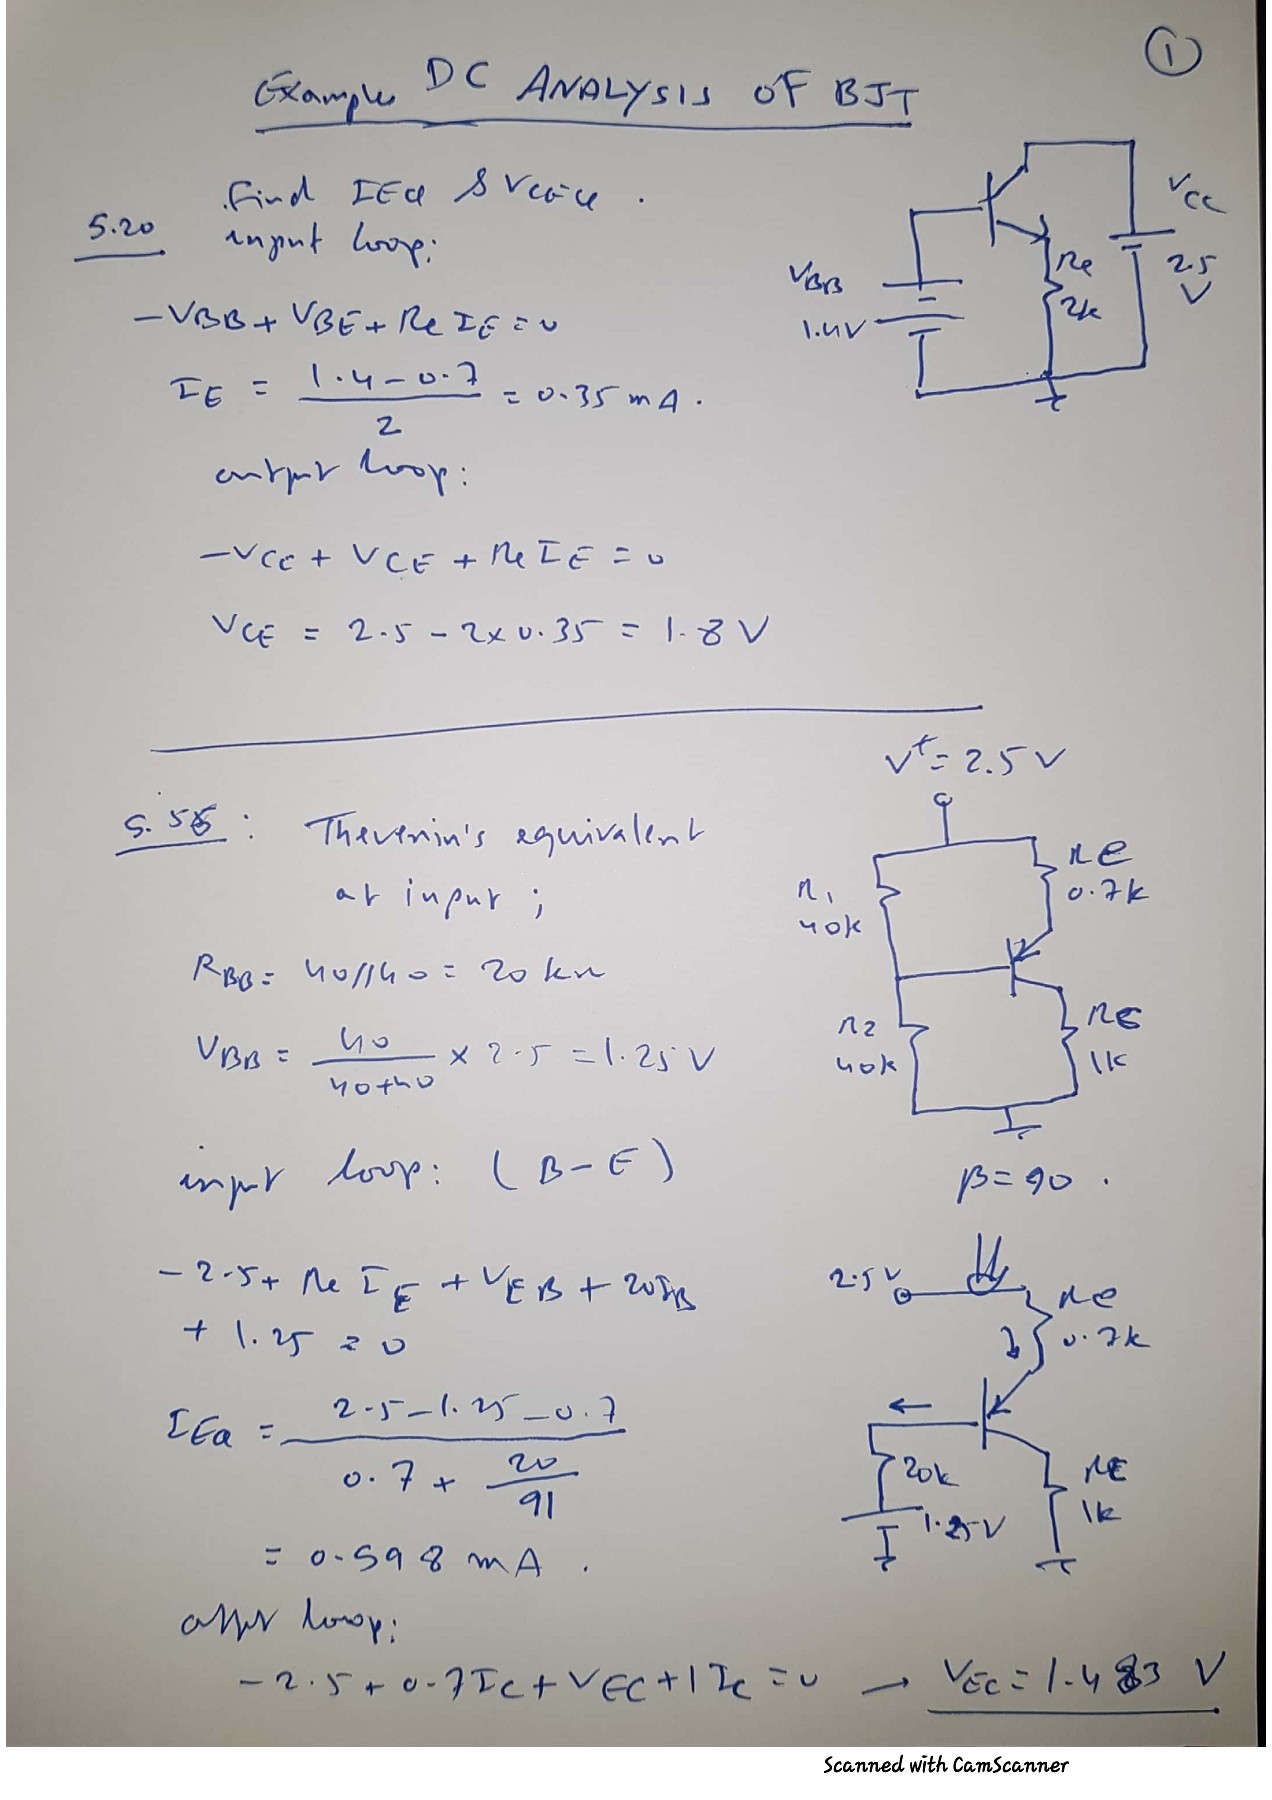 ①
Example DC ANALYSIS OF BJT
5.20
Find IEQ & VCEQ .
input loop:
-VBB + VBE + Re IE = 0
IE = 1.4 - 0.7 / 2 = 0.35 mA .
output loop:
-VCC + VCE + Re IE = 0
VCE = 2.5 - 2x0.35 = 1.8 V
VBB
1.4V
Re
2k
VCC
2.5
V
Thevenin's equivalent
at input ;
RBB = 40//40 = 20 kΩ
VBB = 40 / 40+40 x 2.5 = 1.25 V
input loop: (B-E)
-2.5 + Re IE + VEB + 20IB
+ 1.25 = 0
IEQ = 2.5 - 1.25 - 0.7 / 0.7 + 20/91
= 0.598 mA .
loop:
-2.5 + 0.7Ic + VEC + 1Ic = 0 → VEC = 1.483 V
V+ = 2.5 V
R1
40k
Re
0.7k
R2
40k
1k
β = 90 .
2.5V
Re
0.7k
20k
1.25V
1k
Scanned with CamScanner